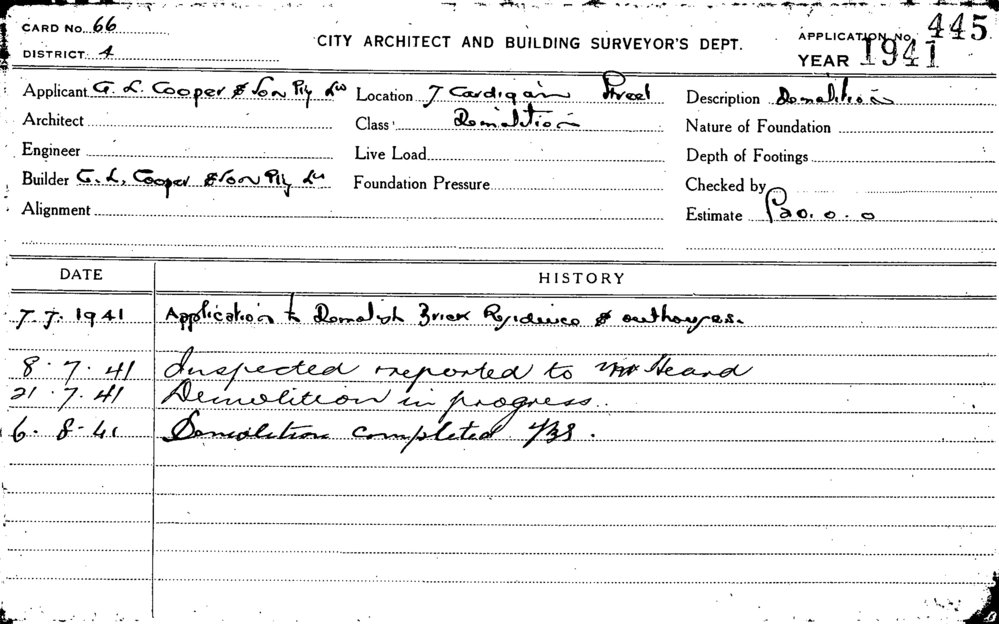 CARD NO. 66
CITY ARCHITECT AND BUILDING SURVEYOR'S DEPT.
APPLICATION NO. 445
DISTRICT 4
YEAR 1941
Applicant G. L. Cooper & Son Pty Ltd Location 7 Cardigan Street Description Demolition
Architect Class Demolition Nature of Foundation
Engineer Live Load Depth of Footings
Builder G. L. Cooper & Son Pty Ltd Foundation Pressure Checked by
Alignment Estimate £20. 0. 0
DATE HISTORY
7. 7. 1941 Application to Demolish Brick Residence & outhouses.
8. 7. 41 Inspected & reported to Mr Heard
21. 7. 41 Demolition in progress.
6. 8. 41 Demolition completed